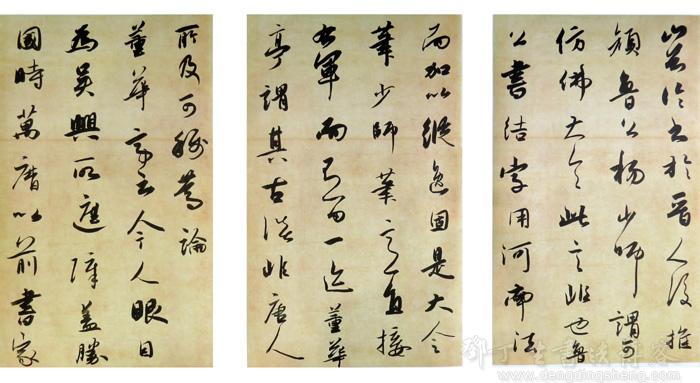 山谷論書於晉人後推
顏魯公楊少師謂可
仿佛大令此言非也魯
公書結字用河南法
而加以縱逸固是大令
筆少師筆意直接
右軍而了無一迹董華
亭謂其古淡非唐人
所及可稱篤論
董華亭云今人眼目
為吳興所遮障蓋勝
國時萬曆以前書家
鄧丁生書法博客
www.dengdingsheng.com